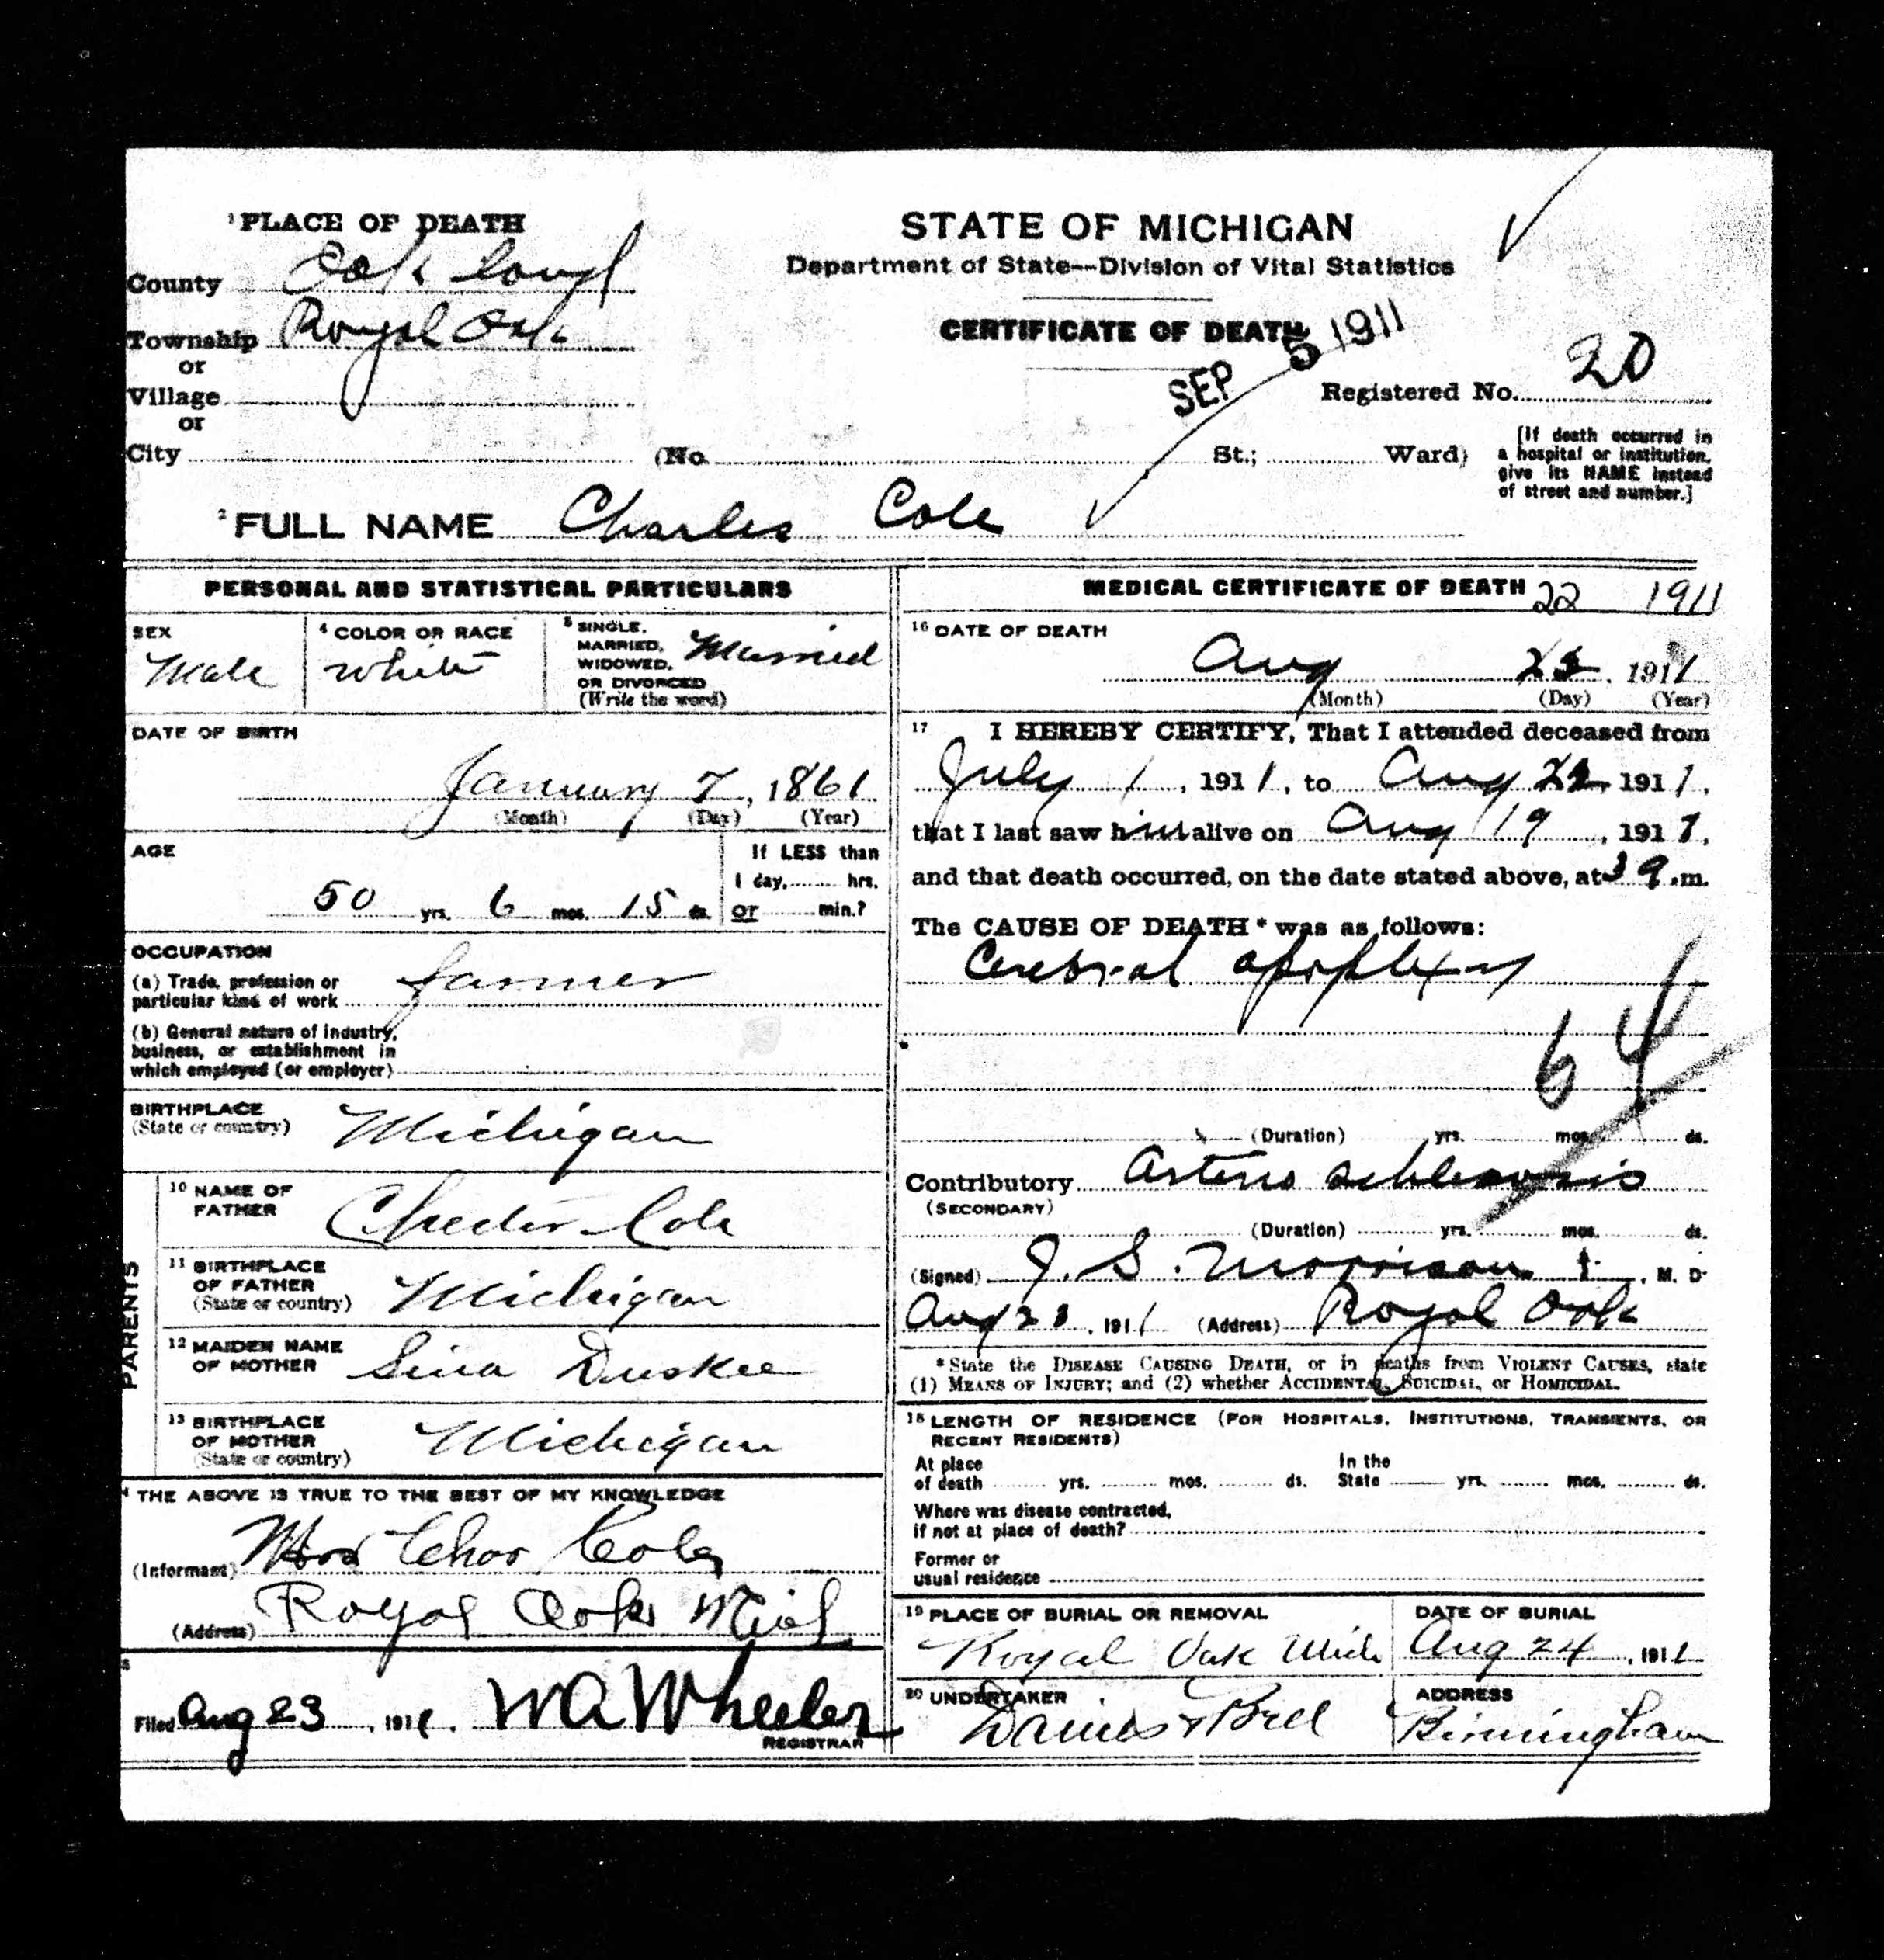 ¹PLACE OF DEATH
County Oakland
Township Royal Oak
or
Village
or
City (No. St.; Ward)
STATE OF MICHIGAN
Department of State—Division of Vital Statistics
CERTIFICATE OF DEATH
SEP 5 1911
Registered No. 20
[If death occurred in
a hospital or institution,
give its NAME instead
of street and number.]
²FULL NAME Charles Cole
PERSONAL AND STATISTICAL PARTICULARS
SEX
Male
⁴ COLOR OR RACE
White
⁵ SINGLE,
MARRIED,
WIDOWED,
OR DIVORCED
(Write the word)
Married
DATE OF BIRTH
January 7, 1861
(Month) (Day) (Year)
AGE
50 yrs. 6 mos. 15 ds.
If LESS than
1 day, hrs.
or min.?
OCCUPATION
(a) Trade, profession or
particular kind of work farmer
(b) General nature of industry,
business, or establishment in
which employed (or employer)
BIRTHPLACE
(State or country) Michigan
PARENTS
¹⁰ NAME OF
FATHER Chester Cole
¹¹ BIRTHPLACE
OF FATHER
(State or country) Michigan
¹² MAIDEN NAME
OF MOTHER Duskee
¹³ BIRTHPLACE
OF MOTHER
(State or country) Michigan
⁴ THE ABOVE IS TRUE TO THE BEST OF MY KNOWLEDGE
(Informant) Mrs Chas Cole
(Address) Royal Oak Mich
Filed Aug 23, 1911. W A Wheeler
REGISTRAR
MEDICAL CERTIFICATE OF DEATH
22 1911
¹⁶ DATE OF DEATH
Aug 1911
(Month) (Day) (Year)
¹⁷ I HEREBY CERTIFY, That I attended deceased from
July 1, 1911, to Aug 22, 1911,
that I last saw him alive on Aug 19, 1911,
and that death occurred, on the date stated above, at 3 m.
The CAUSE OF DEATH* was as follows:
Cerebral apoplexy
64
(Duration) yrs. mos. ds.
Contributory
(SECONDARY)
(Duration) yrs. mos. ds.
(Signed) J. S. Morrison, M. D.
Aug 23, 1911 (Address) Royal Oak
*State the DISEASE CAUSING DEATH, or in deaths from VIOLENT CAUSES, state
(1) MEANS OF INJURY; and (2) whether ACCIDENTAL, SUICIDAL, or HOMICIDAL.
¹⁸ LENGTH OF RESIDENCE (FOR HOSPITALS, INSTITUTIONS, TRANSIENTS, OR
RECENT RESIDENTS)
At place
of death yrs. mos. ds.
In the
State yrs. mos. ds.
Where was disease contracted,
if not at place of death?
Former or
usual residence
¹⁹ PLACE OF BURIAL OR REMOVAL
Royal Oak Mich
DATE OF BURIAL
Aug 24, 1911
²⁰ UNDERTAKER
ADDRESS
Birmingham